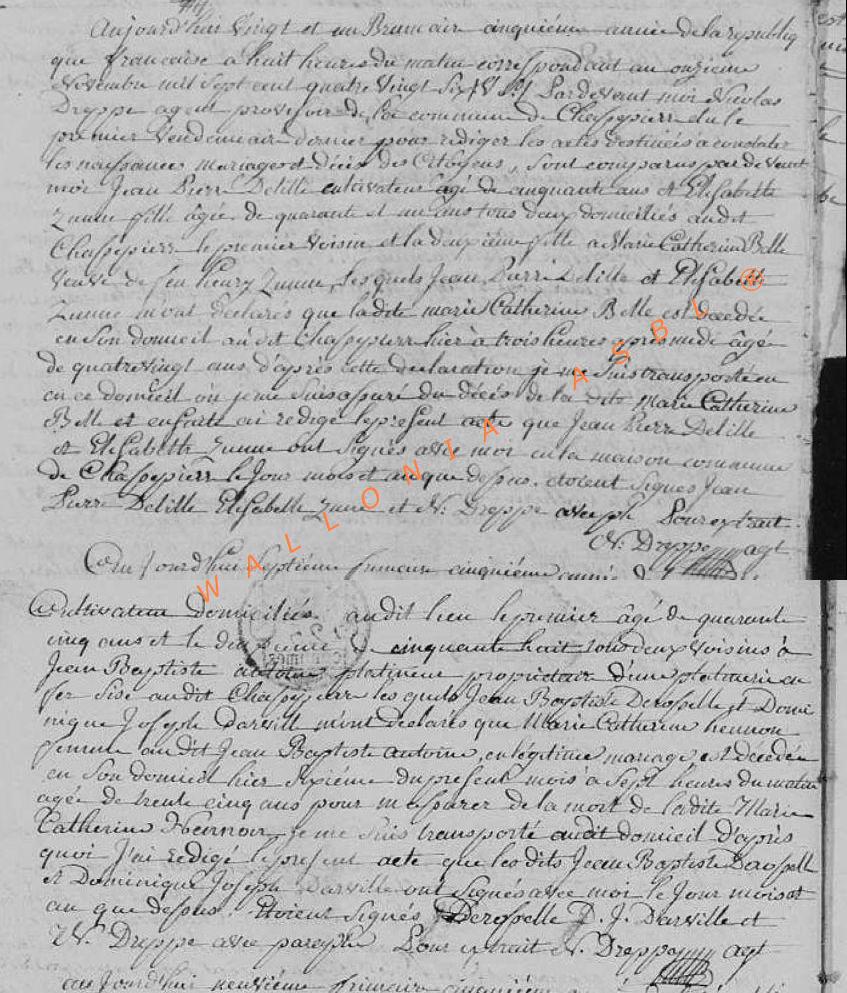 Aujourd'huy Vingt et un Brumair cinquiéme année de la republiq
que francaise a huit heures du matin correspondant au onzieme
Novembre mil Sept cent quatre Vingt Seize Pardevent moi Nicolas
Dreppe agent provisoir de la commune de Chassepierre elu le
premier Vendemiair dernier pour rediger les actes destinés a constater
les naissances mariages et décés des Citoÿens, sont comparus par devent
moi Jean Pierre Delille cultivateur agé de cinquante ans et Elisabette
Zunne fille âgée de quarante et un ans tous deux domiciliés audit
Chassepierre le premier Voisin et la deuxiéme fille a Marie Catherine Belle
Veuve de feu henry Zunne, Lesquels Jean Pierre Delille et Elisabette
Zunne m'ont déclarés que ladite marie Catherine Belle est decedée
en Son domicil audit Chassepierre hier à trois heures apres midi âgée
de quatrevingt ans d'après cette declaration je me Suis transporté en
ce domicil ou je me suis assuré du décés de la dite Marie Catherine
Belle et ensuite ai redigé le present acte que Jean Pierre Delille
et Elisabette Zunne ont Signés avec moi en la maison commune
de Chassepierre le Jour mois et an que dessus. etoient Signes Jean
Pierre Delille Elisabette Zune et N. Dreppe avec ph Pour extrait
N. Dreppe agt
Aujourd'hui Septiéme frimaire cinquiéme année
Cultivateur domiciliés audit lieu le premier âgé de quarante
cinq ans et le deuxieme de cinquante huit tous deux Voisins à
Jean Baptiste antoine platineur propriétair d'une platinerie en
fer Sise audit Chassepierre lesquels Jean Baptiste Derosselle et Domi
nique Joseph Darville m'ont déclarés que Marie Catherine hennon
femme audit Jean Baptiste antoine, en légitime mariage est décedée
en Son domicil hier Sixiéme du present mois à Sept heures du matin
agée de trente cinq ans pour m'assurer de la mort de ladite Marie
Catherine Hernon je me Suis transporté audit domicil d'après
quoi J'ai redigé le present acte que les dits Jean Baptiste Derosselle
et Dominique Joseph Darville ont Signés avec moi le Jour mois et
an que dessus. Etoient Signés Derosselle D. J. Darville et
N. Dreppe avec paraphe Pour extrait N. Dreppe agt
aujourd'hui neuviéme frimair cinquiéme
WALLONIA ASBL